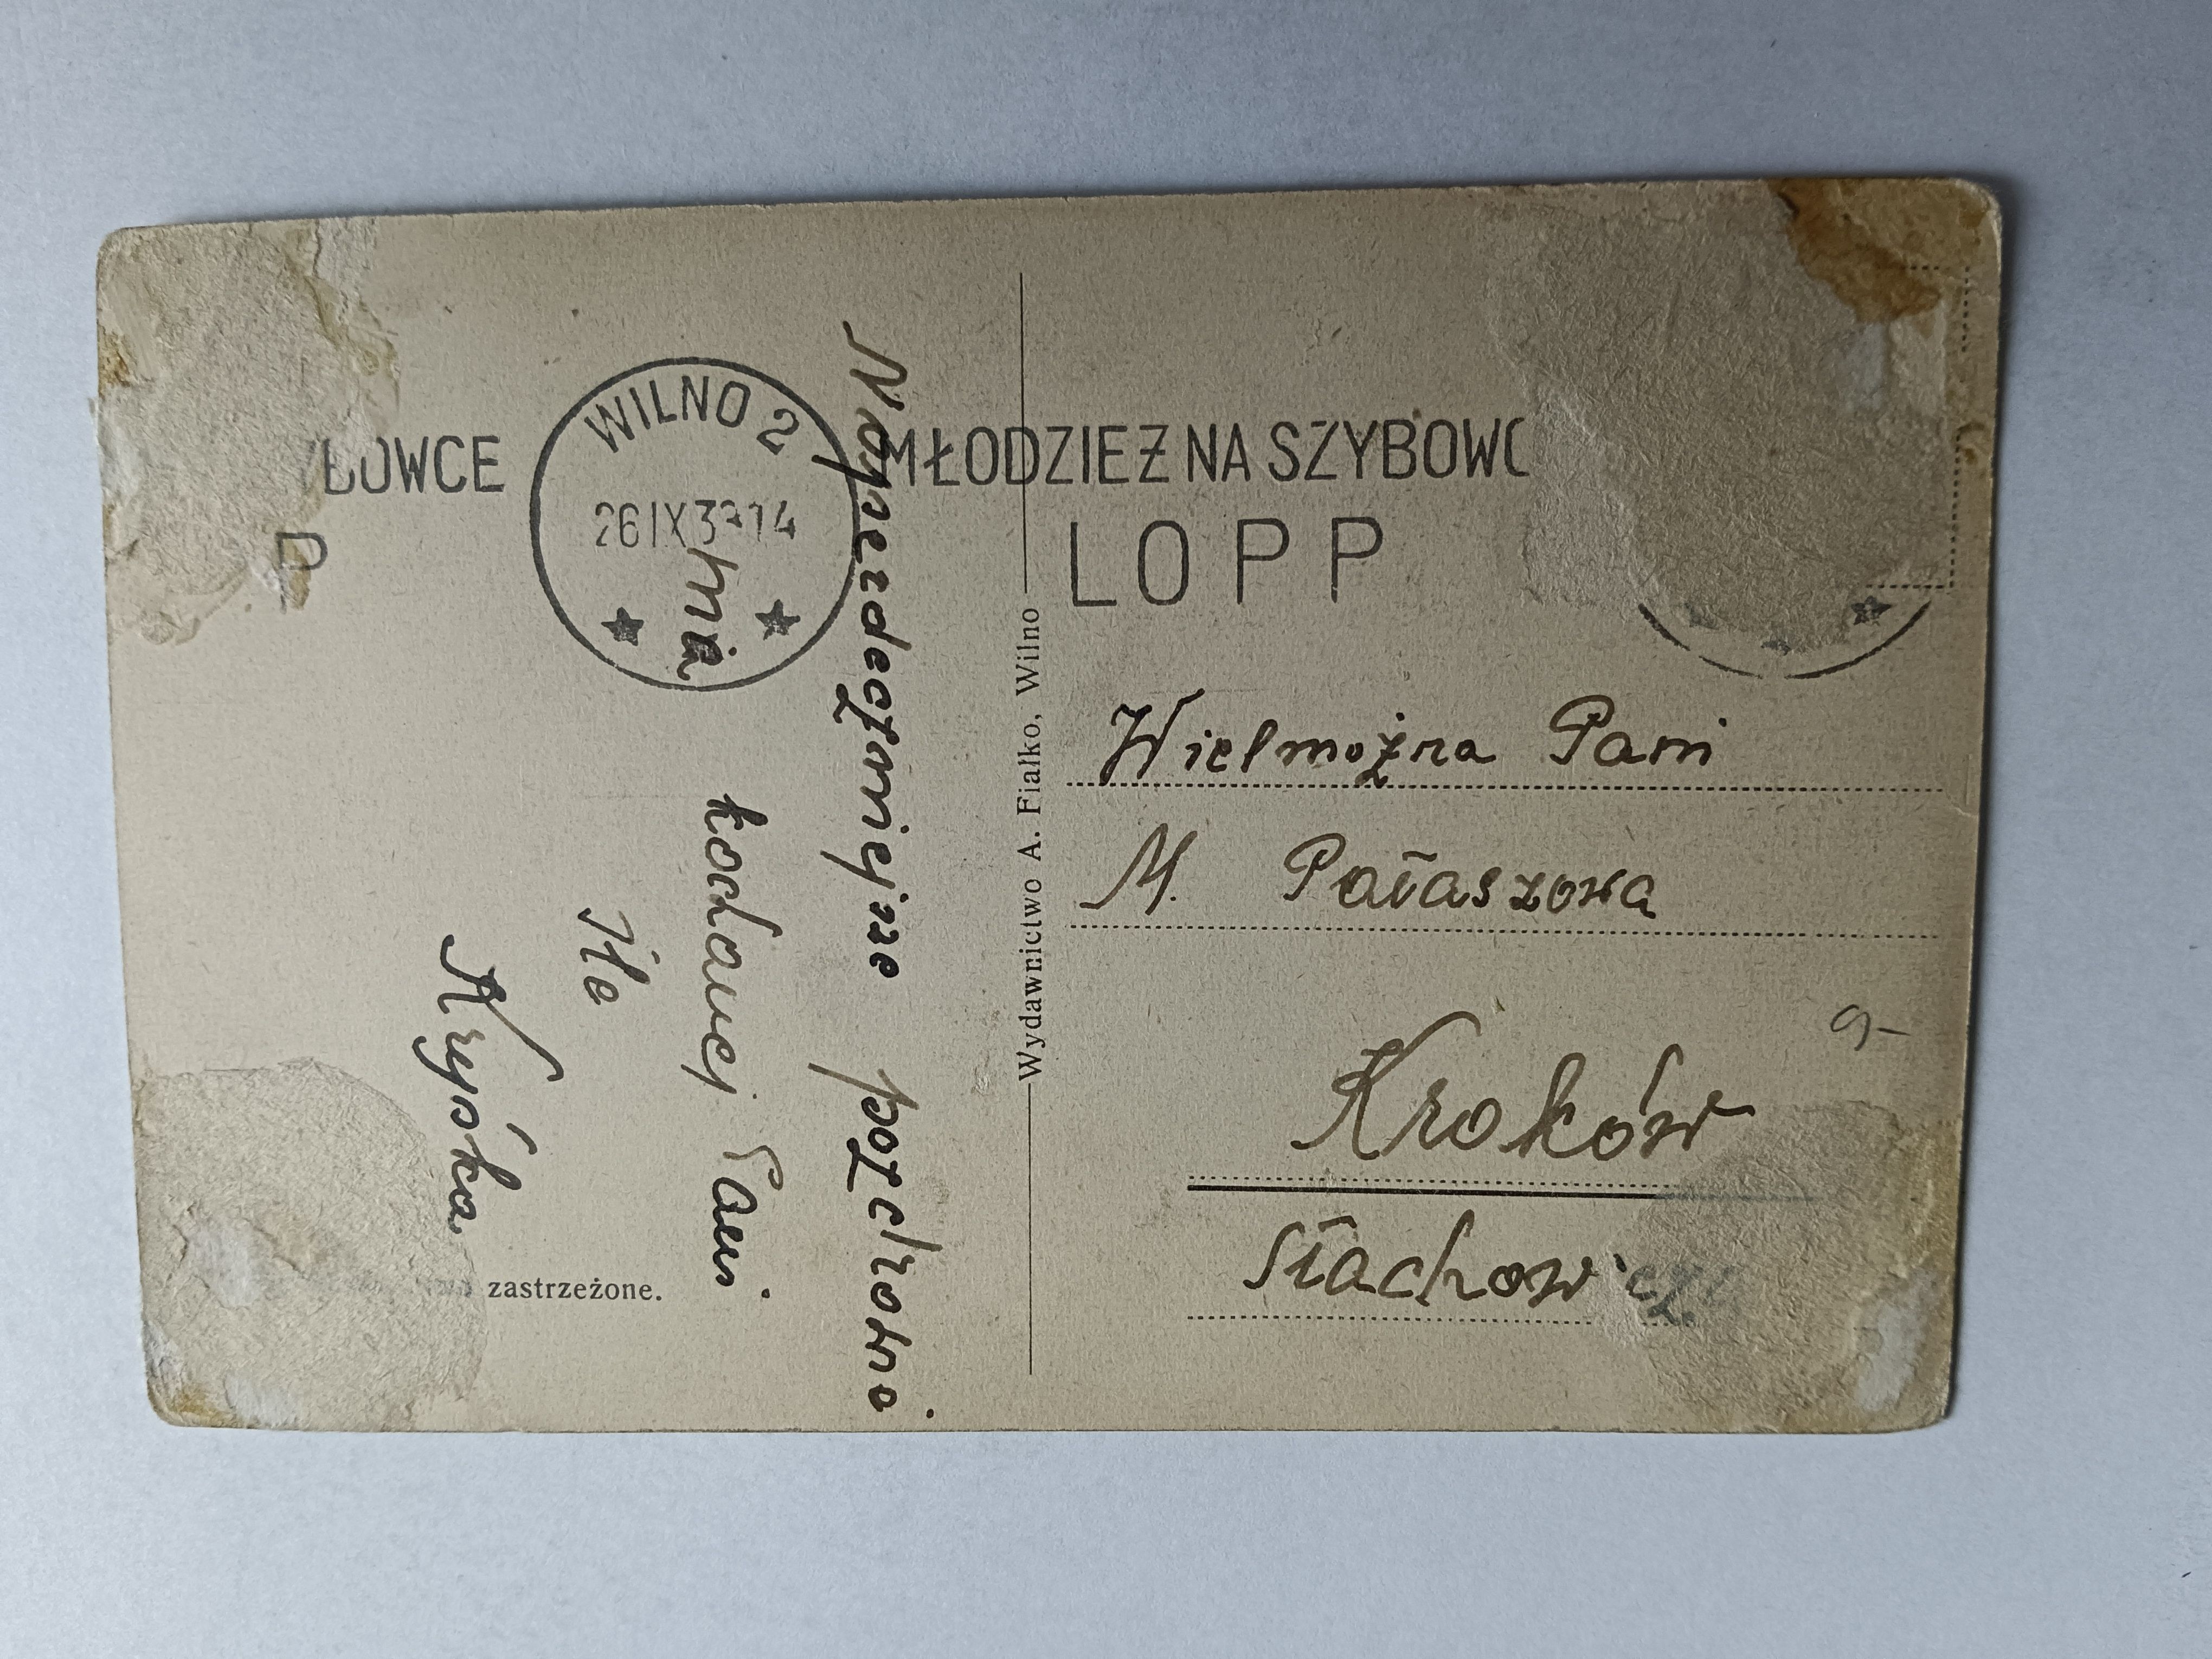 YBOWCE
P
WILNO 2
26 IX 3 14
MŁODZIEŻ NA SZYBOWC
LOPP
Najserdeczniejsze pozdrowi
nia
kochanej Pani
śle
Kryśka
zastrzeżone.
Wydawnictwo A. Fiałko, Wilno
Wielmożna Pani
M. Pałaszowa
Kraków
Słachowicza
9-